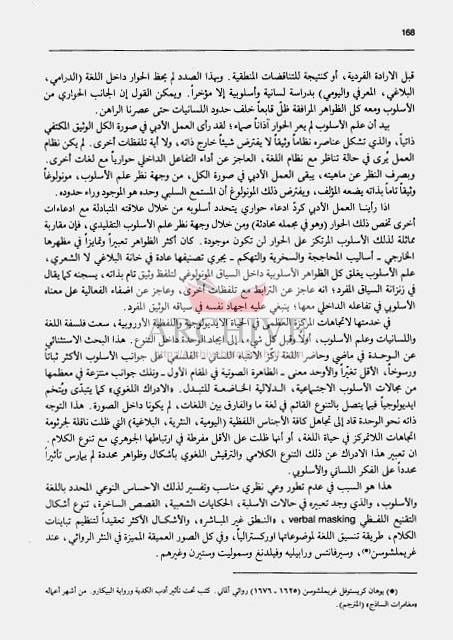 168
قبل الارادة الفردية، أو كنتيجة للتناقضات المنطقية. وبهذا الصدد لم يحظ الحوار داخل اللغة (الدرامي،
البلاغي، المعرفي واليومي) بدراسة لسانية وأسلوبية إلا مؤخراً. ويمكن القول إن الجانب الحواري من
الأسلوب ومعه كل الظواهر المرافقة ظلّ قابعاً خلف حدود اللسانيات حتى عصرنا الراهن.
بيد أن علم الأسلوب لم يعر الحوار آذاناً صماء؛ لقد رأى العمل الأدبي في صورة الكل الوثيق المكتفي
ذاتياً، والذي تشكل عناصره نظاماً وثيقاً لا يفترض شيئاً خارج ذاته، ولا أية تلفظات أخرى. لم يكن نظام
العمل يُرى في حالة تناظر مع نظام اللغة، العاجز عن أداء التفاعل الداخلي حوارياً مع لغات أخرى.
وبصرف النظر عن ماهيته، يبقى العمل الأدبي في صورة الكل، من وجهة نظر علم الأسلوب، مونولوغاً
وثيقاً تاماً بذاته يضعه المؤلف، ويفترض ذلك المونولوغ أن المستمع السلبي وحده هو الموجود وراء حدوده.
اذا رأينا العمل الأدبي كردّ ادعاء حواري يتحدد أسلوبه من خلال علاقته المتبادلة مع ادعاءات
أخرى تخص ذلك الحوار (وهو في مجمله محادثة) ومن خلال وجهة نظر علم الأسلوب التقليدي، فإن مقاربة
مماثلة لذلك الأسلوب المرتكز على الحوار لن تكون موجودة. وكان أكثر الظواهر تعبيراً وتمايزاً في مظهرها
الخارجي - أساليب المحاججة والسخرية والتهكم - يجري تصنيفها عادة في خانة البلاغي لا الشعري،
علم الأسلوب يغلق كل الظواهر الأسلوبية داخل السياق المونولوغي لتلفظ وثيق تام بذاته، يسجنه كما يقال
في زنزانة السياق المفرد؛ انه عاجز عن الترابط مع تلفظات أخرى، وعاجز عن اضفاء الفعلية على معناه
الأسلوبي في تفاعله الداخلي معها؛ ينبغي عليه اجهاد نفسه في سياقه الوثيق المفرد.
في خدمتها لاتجاهات المركزة العظمى في الحياة الايديولوجية واللفظية الأوروبية، سعت فلسفة اللغة
واللسانيات وعلم الأسلوب، أولاً وقبل كل شيء، إلى إيجاد الوحدة داخل التنوع. هذا البحث الاستثنائي
عن الوحدة في ماضي وحاضر اللغة ركز الانتباه اللساني - الفلسفي على جوانب الأسلوب الأكثر ثباتاً
ورسوخاً، الأقل تغيّراً والأوحد معنى - الظاهرة الصوتية في المقام الأول - وتلك جوانب منتزعة في معظمها
من مجالات الأسلوب الاجتماعية، الدلالية الخاضعة للتبدل. «الادراك اللغوي» كما يتبدّى ويُتخم
ايديولوجياً فيما يتصل بالتنوع القائم في لغة ما والفارق بين اللغات، لم يكونا داخل الصورة. هذا التوجه
ذاته نحو الوحدة قاد إلى تجاهل كافة الأجناس اللفظية (اليومية، النثرية، البلاغية) التي ظلت ناقلة لجرثومة
اتجاهات اللاتمركز في حياة اللغة، أو أنها ظلت على الأقل مفرطة في ارتباطها الجوهري مع تنوع الكلام.
ان تعبير هذا الادراك عن ذلك التنوع الكلامي والترقيش اللغوي بأشكال وظواهر محددة لم يمارس تأثيراً
محدداً على الفكر اللساني والأسلوبي.
هذا هو السبب في عدم تطور وعي نظري مناسب وتفسير لذلك الاحساس النوعي المحدد باللغة
والأسلوب، والذي وجد تعبيره في حالات الأسلبة، الحكايات الشعبية، القصص الساخرة، تنوع أشكال
التقنيع اللفظي verbal masking، «النطق غير المباشر»، والأشكال الأكثر تعقيداً لتنظيم تباينات
الكلام، طريقة تنسيق اللغة لموضوعاتها اوركسترالياً، وفي كل الصور العميقة المميزة في النثر الروائي، عند
غريملشوسن(*)، وسيرفانتس ورابيليه وفيلدنغ وسموليت وستيرن وغيرهم.
(*) يوهان كريستوفل غريملشوسن (١٦٢٥ - ١٦٧٦) روائي ألماني. كتب تحت تأثير أدب الكدية ورواية البيكارو. من أشهر أعماله
«مغامرات الساذج» (المترجم).
ARCHIVE